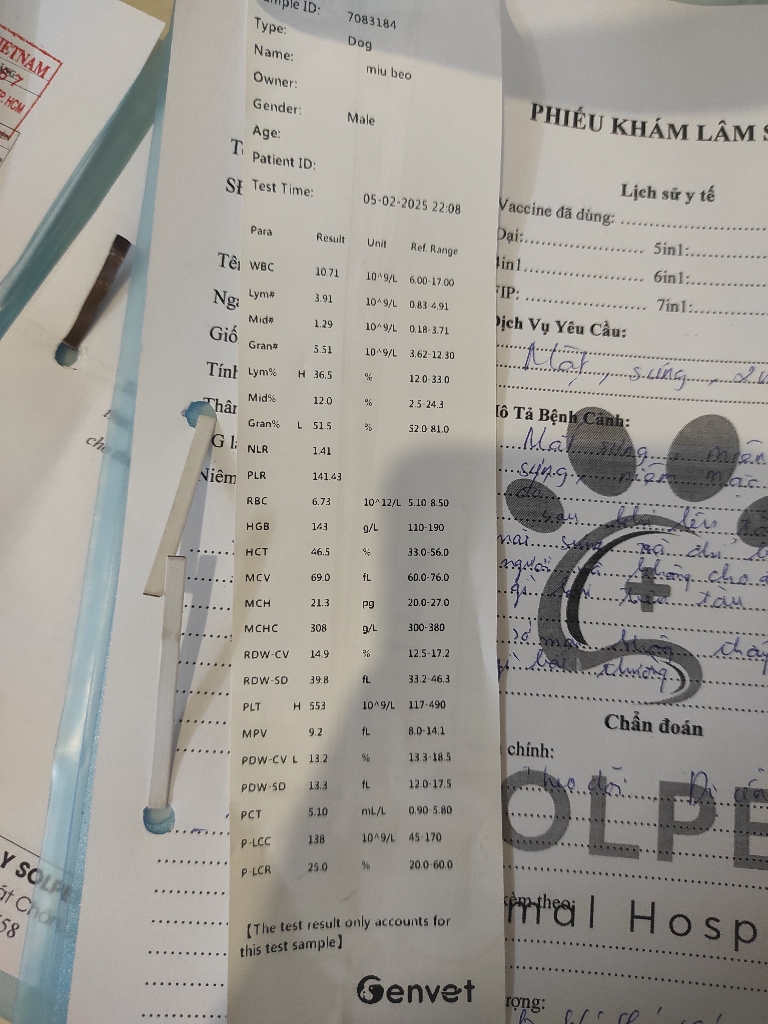 IETNAM
P.HCM
mple ID: 7083184
Type: Dog
Name: miu beo
Owner:
Gender: Male
Age:
Patient ID:
Test Time: 05-02-2025 22:08
Para Result Unit Ref. Range
WBC 10.71 10^9/L 6.00-17.00
Lym# 3.91 10^9/L 0.83-4.91
Mid# 1.29 10^9/L 0.18-3.71
Gran# 5.51 10^9/L 3.62-12.30
Lym% H 36.5 % 12.0-33.0
Mid% 12.0 % 2.5-24.3
Gran% L 51.5 % 52.0-81.0
NLR 1.41
PLR 141.43
RBC 6.73 10^12/L 5.10-8.50
HGB 143 g/L 110-190
HCT 46.5 % 33.0-56.0
MCV 69.0 fL 60.0-76.0
MCH 21.3 pg 20.0-27.0
MCHC 308 g/L 300-380
RDW-CV 14.9 % 12.5-17.2
RDW-SD 39.8 fL 33.2-46.3
PLT H 553 10^9/L 117-490
MPV 9.2 fL 8.0-14.1
PDW-CV L 13.2 % 13.3-18.5
PDW-SD 13.3 fL 12.0-17.5
PCT 5.10 mL/L 0.90-5.80
P-LCC 138 10^9/L 45-170
P-LCR 25.0 % 20.0-60.0
【The test result only accounts for
this test sample】
Genvet
PHIẾU KHÁM LÂM S
Lịch sử y tế
Vaccine đã dùng:
Dại: 5in1:
4in1 6in1:
FIP: 7in1:
Dịch Vụ Yêu Cầu:
Mắt, sưng,
Mô Tả Bệnh Cảnh:
Mắt sưng, miệng
sưng, niêm mạc
đỏ
sau khi lên
người và không cho
không thấy
gì bất thường
Chẩn đoán
chính:
Theo dõi Dị ứng
OLPE
kèm theo:
mal Hosp
Tên
Giố
Tính
Thân
Niêm
Y SOLPE
58